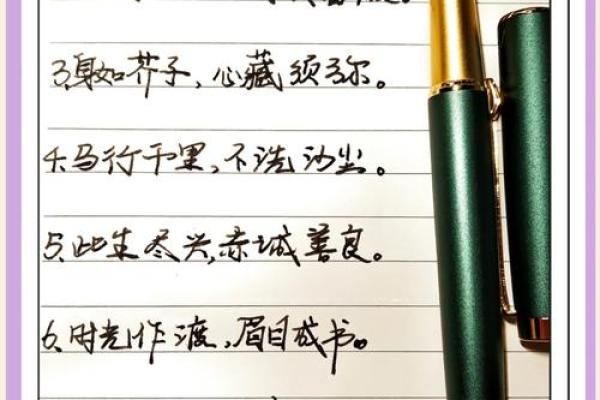 3、身如芥子，心藏须弥。
4、马行千里，不洗沙尘。
5、此生尽兴，赤城善良。
6、时光作渡，眉目成书。